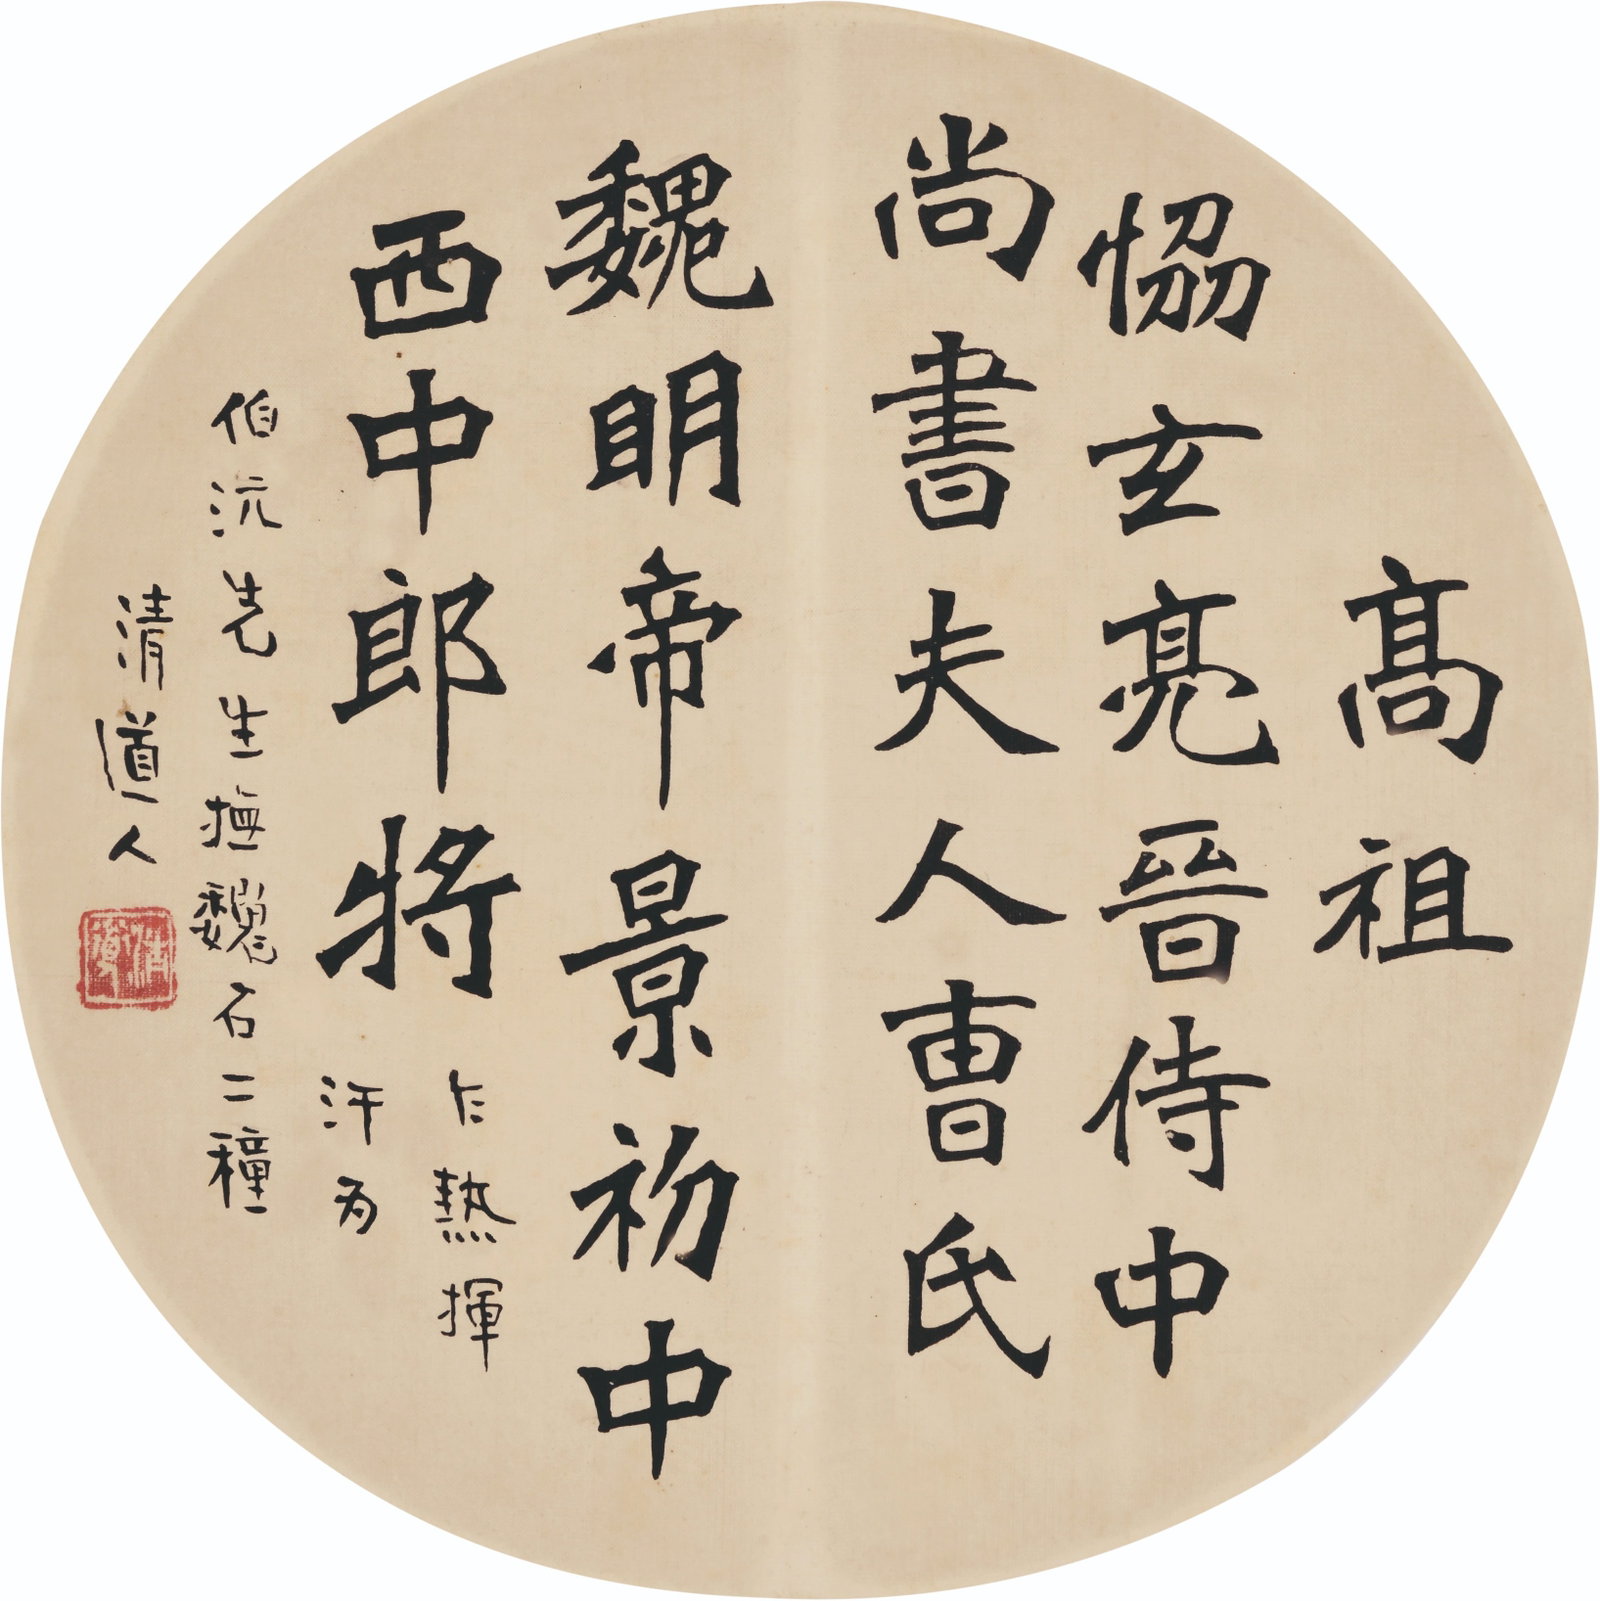 髙祖
恊玄亮晉侍中
尚書夫人曺氏
魏明帝景初中
西中郎將
乍熱揮
汗为
伯沅先生撫魏石二種
清道人